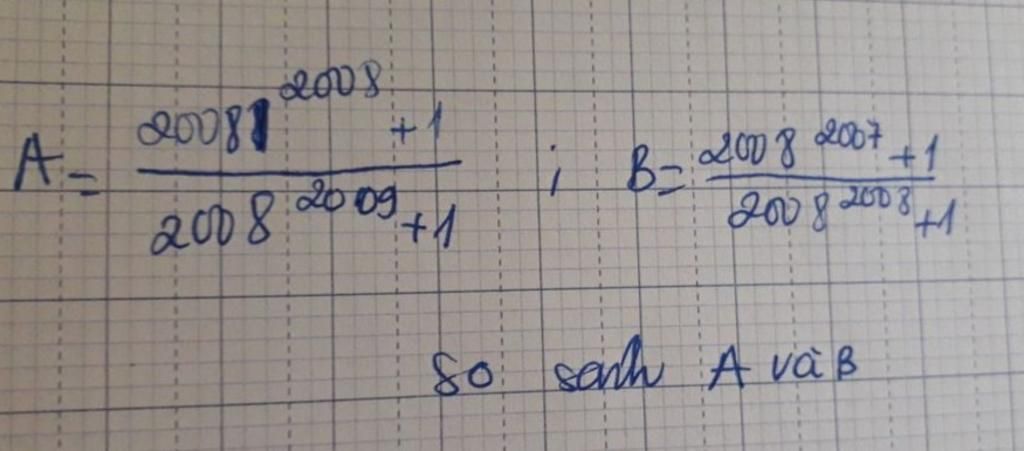 A = (2008^2008 + 1) / (2008^2009 + 1) ; B = (2008^2007 + 1) / (2008^2008 + 1)
So sanh A và B